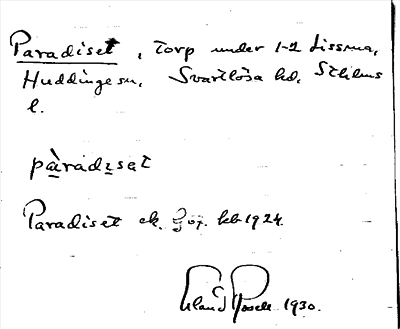 Paradiset, torp under 1-2 Lissma,
Huddinge sn, Svartlösa hd, Sthlms
l.
pàradɩsat
Paradiset ek. 607. kb 1924.
Erland Rosell 1930.